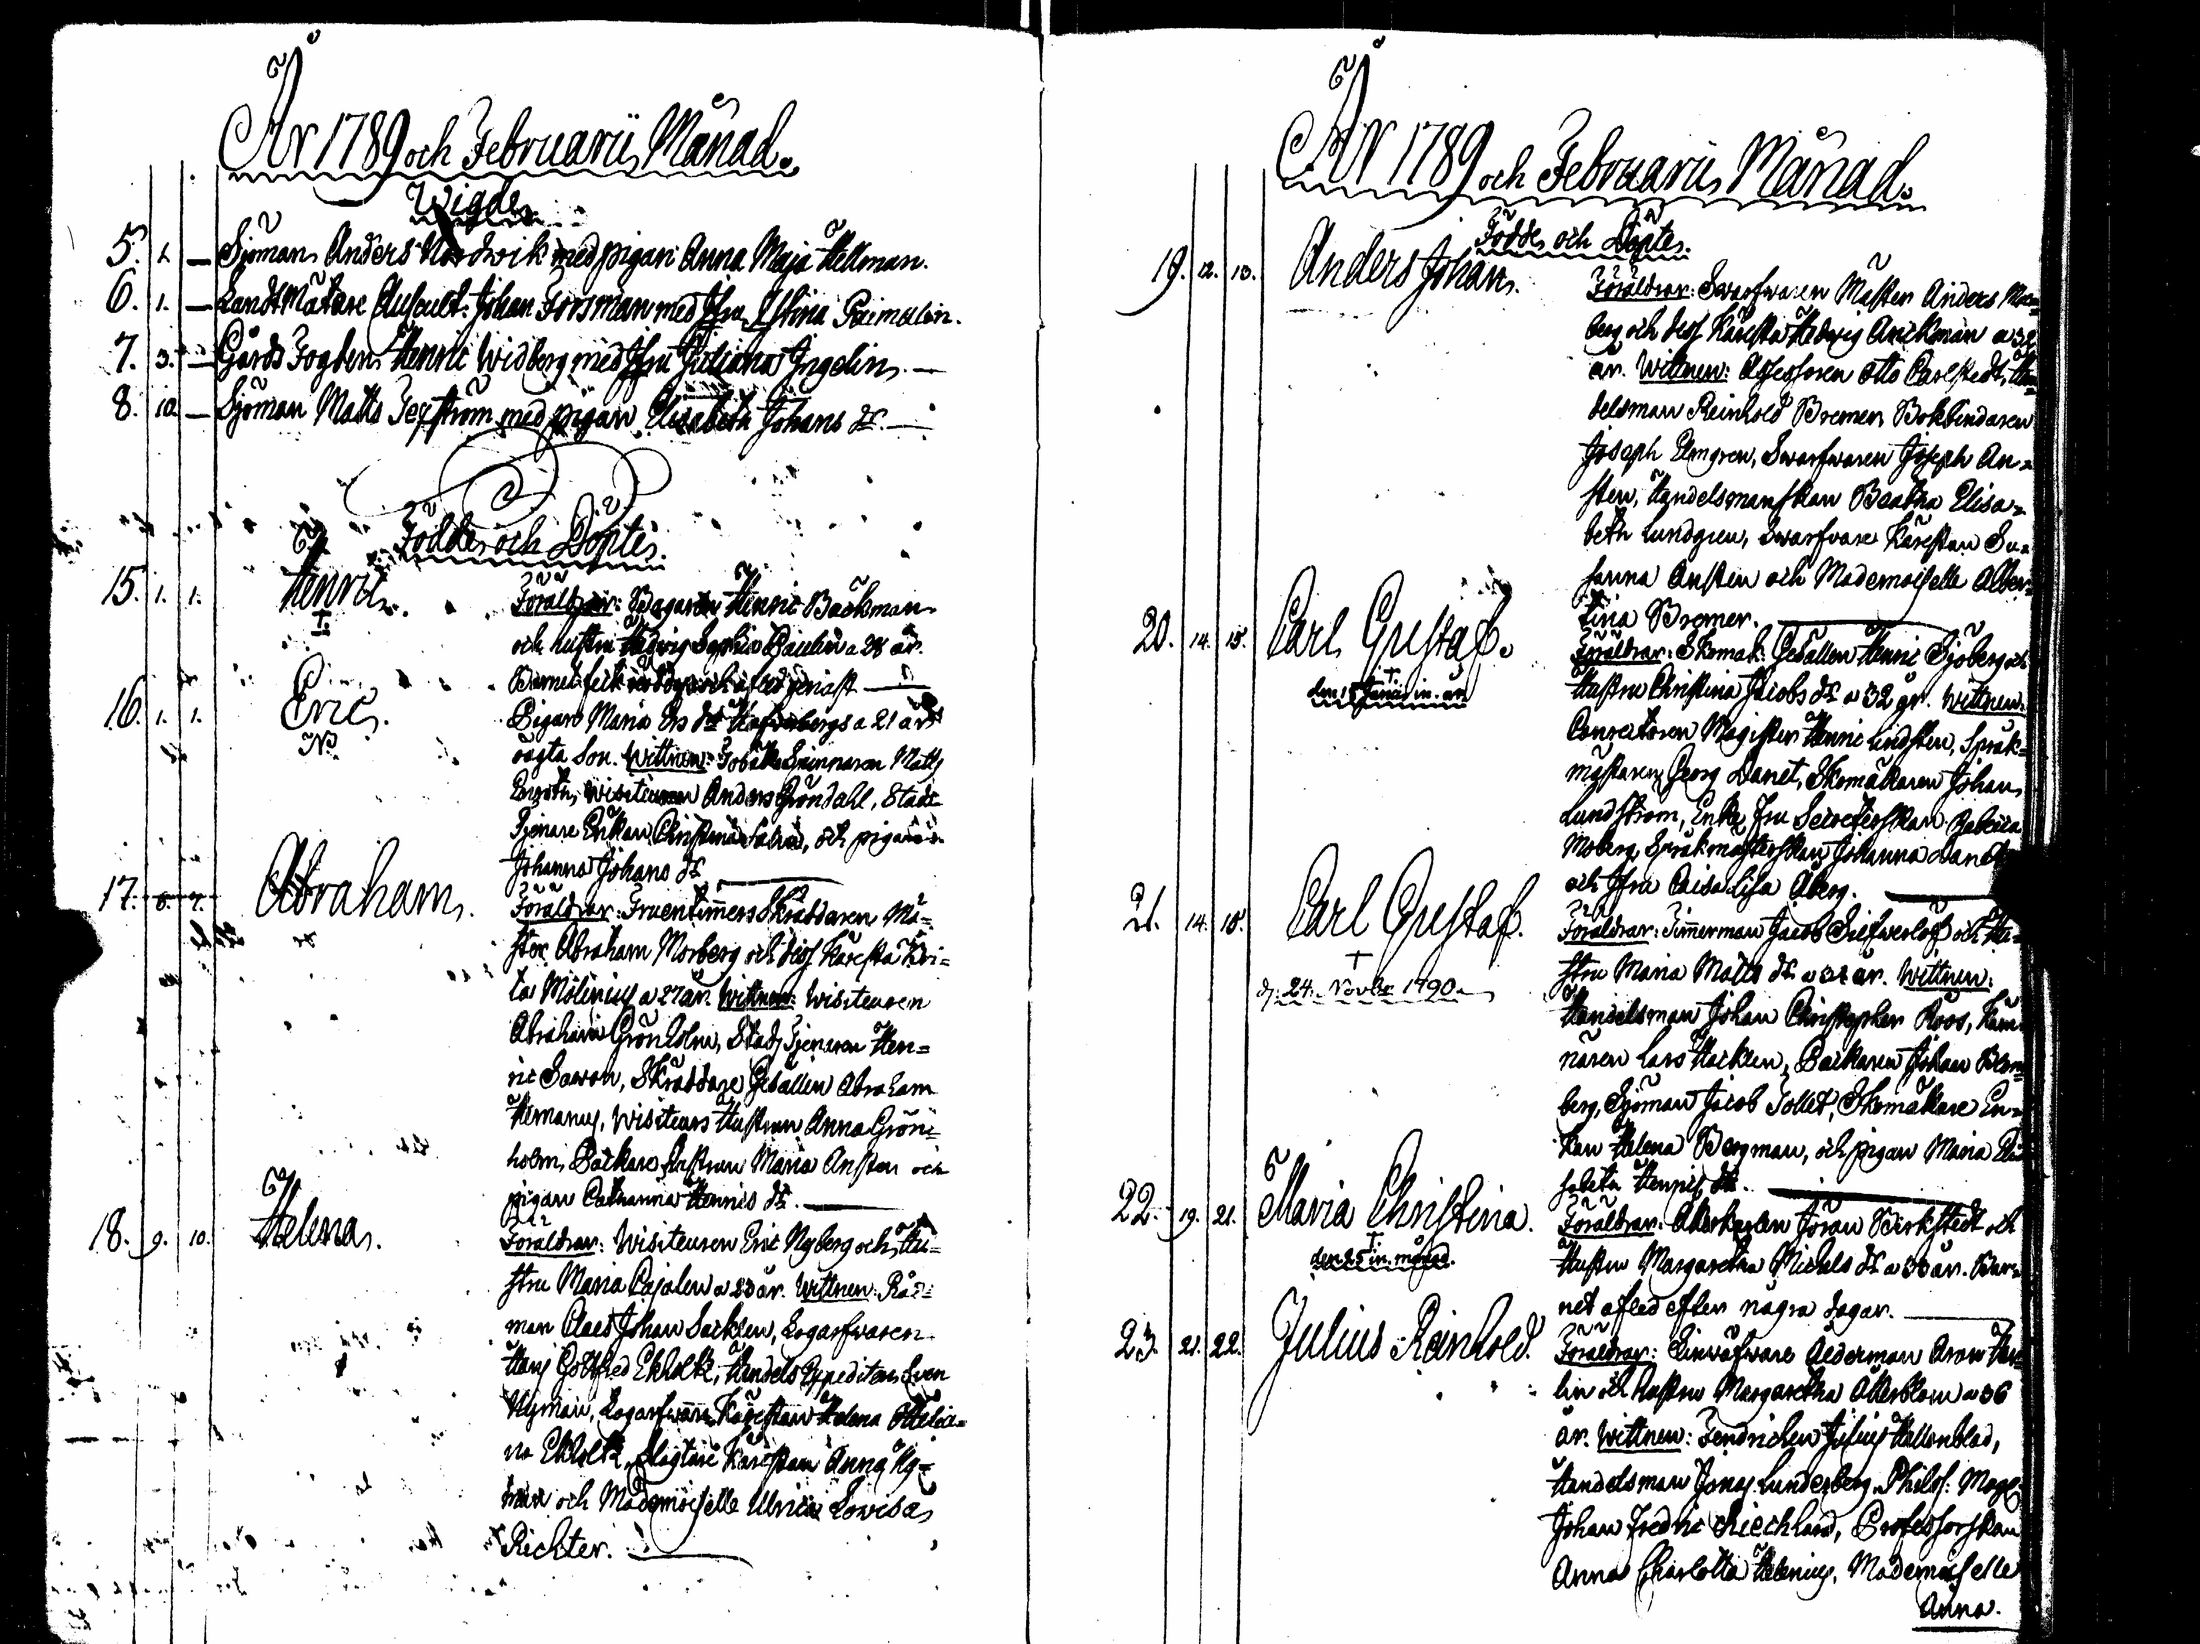 År 1789 och Februarii Månad.
Wigde
5. 1. — Sjöman Anders Nordwik med pigan Anna Maja Hellman.
6. 1. — Landt Mätare Auscult: Johan Forsman med Jfru Stina Paimalin.
7. 3. — Gårds Fogden Henric Widberg med Jfru Juliana Ingelin. —
8. 10. — Sjöman Matts Tegström med pigan Elisabeth Johans dr. —
Födde och Döpte.
15. 1. 1. Henric. †
Föräldrar: Bagaren Henric Backman
och hustru Hedwig Sophia Paulin a 28 år.
Barnet fick nöddop och afled genast —
16. 1. 1. Eric. No.
Pigan Maria Ers dr a 21 års
oägta Son. Wittnen: Tobaks Spinnaren Matts
Wisiteuren Anders Gröndahl, Stads
Tjenare Enkan Christina och pigan
Johanna Johans dr
17. 6. 7. Abraham.
Föräldrar: Fruentimmers Skräddaren Mä-
ster Abraham Morberg och dess Käresta Bri-
ta Molinius a 27 år. Wittnen: Wisiteuren
Abraham Grönholm, Stads Tjenaren Hen-
ric Sawon, Skräddare Gesällen Abraham
Hemanus, Wisiteurs Hustrun Anna Grön-
holm, Backare Hustrun Maria Ansten och
pigan Catharina Henrics dr. —
18. 9. 10. Helena.
Föräldrar: Wisiteuren Eric Nyberg och Hu-
stru Maria Cajalen a 23 år. Wittnen: Råd-
man Claes Johan Sacklen, Logarfwaren
Hans Gottfred Ekholtz, Handels Expediten Sven
Nyman, Logarfware Kärestan Helena Ottilia-
na Ekholtz, Slagtare Kärestan Anna Ny-
man och Mademoiselle Ulrica Lovisa
Richter.
År 1789 och Februarii Månad.
Födde och Döpte.
19. 12. 13. Anders Johan.
Föräldrar: Swarfwaren Mäster Anders Mor-
berg och dess Käresta Hedwig Anckman a 32
år. Wittnen: Assessoren Otto Carlstedt, Han-
delsman Reinhold Bremer, Bokbindaren
Joseph Elmgren, Swarfwaren Joseph An-
sten, Handelsmanskan Beatha Elisa-
beth Lundgren, Swarfware Kärestan Su-
sanna Ansten och Mademoiselle Alber-
tina Bremer.
20. 14. 15. Carl Gustaf. †
den 15 Januar. in. an.
Föräldrar: Skomak: Gesällen Henric Sjöberg och
Hustru Christina Jacobs dr a 32 år. Wittnen:
Conrectoren Magister Henric Lindsten, Språk-
mästaren Georg Danet, Skomakaren Johan
Lundström, Enke Fru Secreterskan Rebecca
Moberg, Språkmästerskan Johanna Danet
och Jfru Caisa Lisa Åberg. —
21. 14. 15. Carl Gustaf. †
d. 24. Novbr. 1790.
Föräldrar: Timmerman Jacob Siefwerlöf och Hu-
stru Maria Matts dr a 32 år. Wittnen:
Handelsman Johan Christopher Roos, Käm-
nären Lars Hacklin, Backaren Johan Blom-
berg, Sjöman Jacob Tollet, Skomakare En-
kan Helena Bergman, och pigan Maria Eli-
sabeta Henrics dr. —
22. 19. 21. Maria Christina. †
den 25 in. månad.
Föräldrar: Åkerkarlen Jöran Birkstedt och
Hustru Margaretha Michels dr a 35 år. Bar-
net afled efter några dagar.
23. 21. 22. Julius Reinhold.
Föräldrar: Linwäfware Ålderman Aron
lin och hustru Margaretha Åkerblom a 36
år. Wittnen: Fendrichen Julius Hallonblad,
Handelsman Jonas Lunderberg, Philos: Mag:
Johan Fredric Rieckhard, Professorskan
Anna Charlotta Helenius, Mademoiselle
Anna.